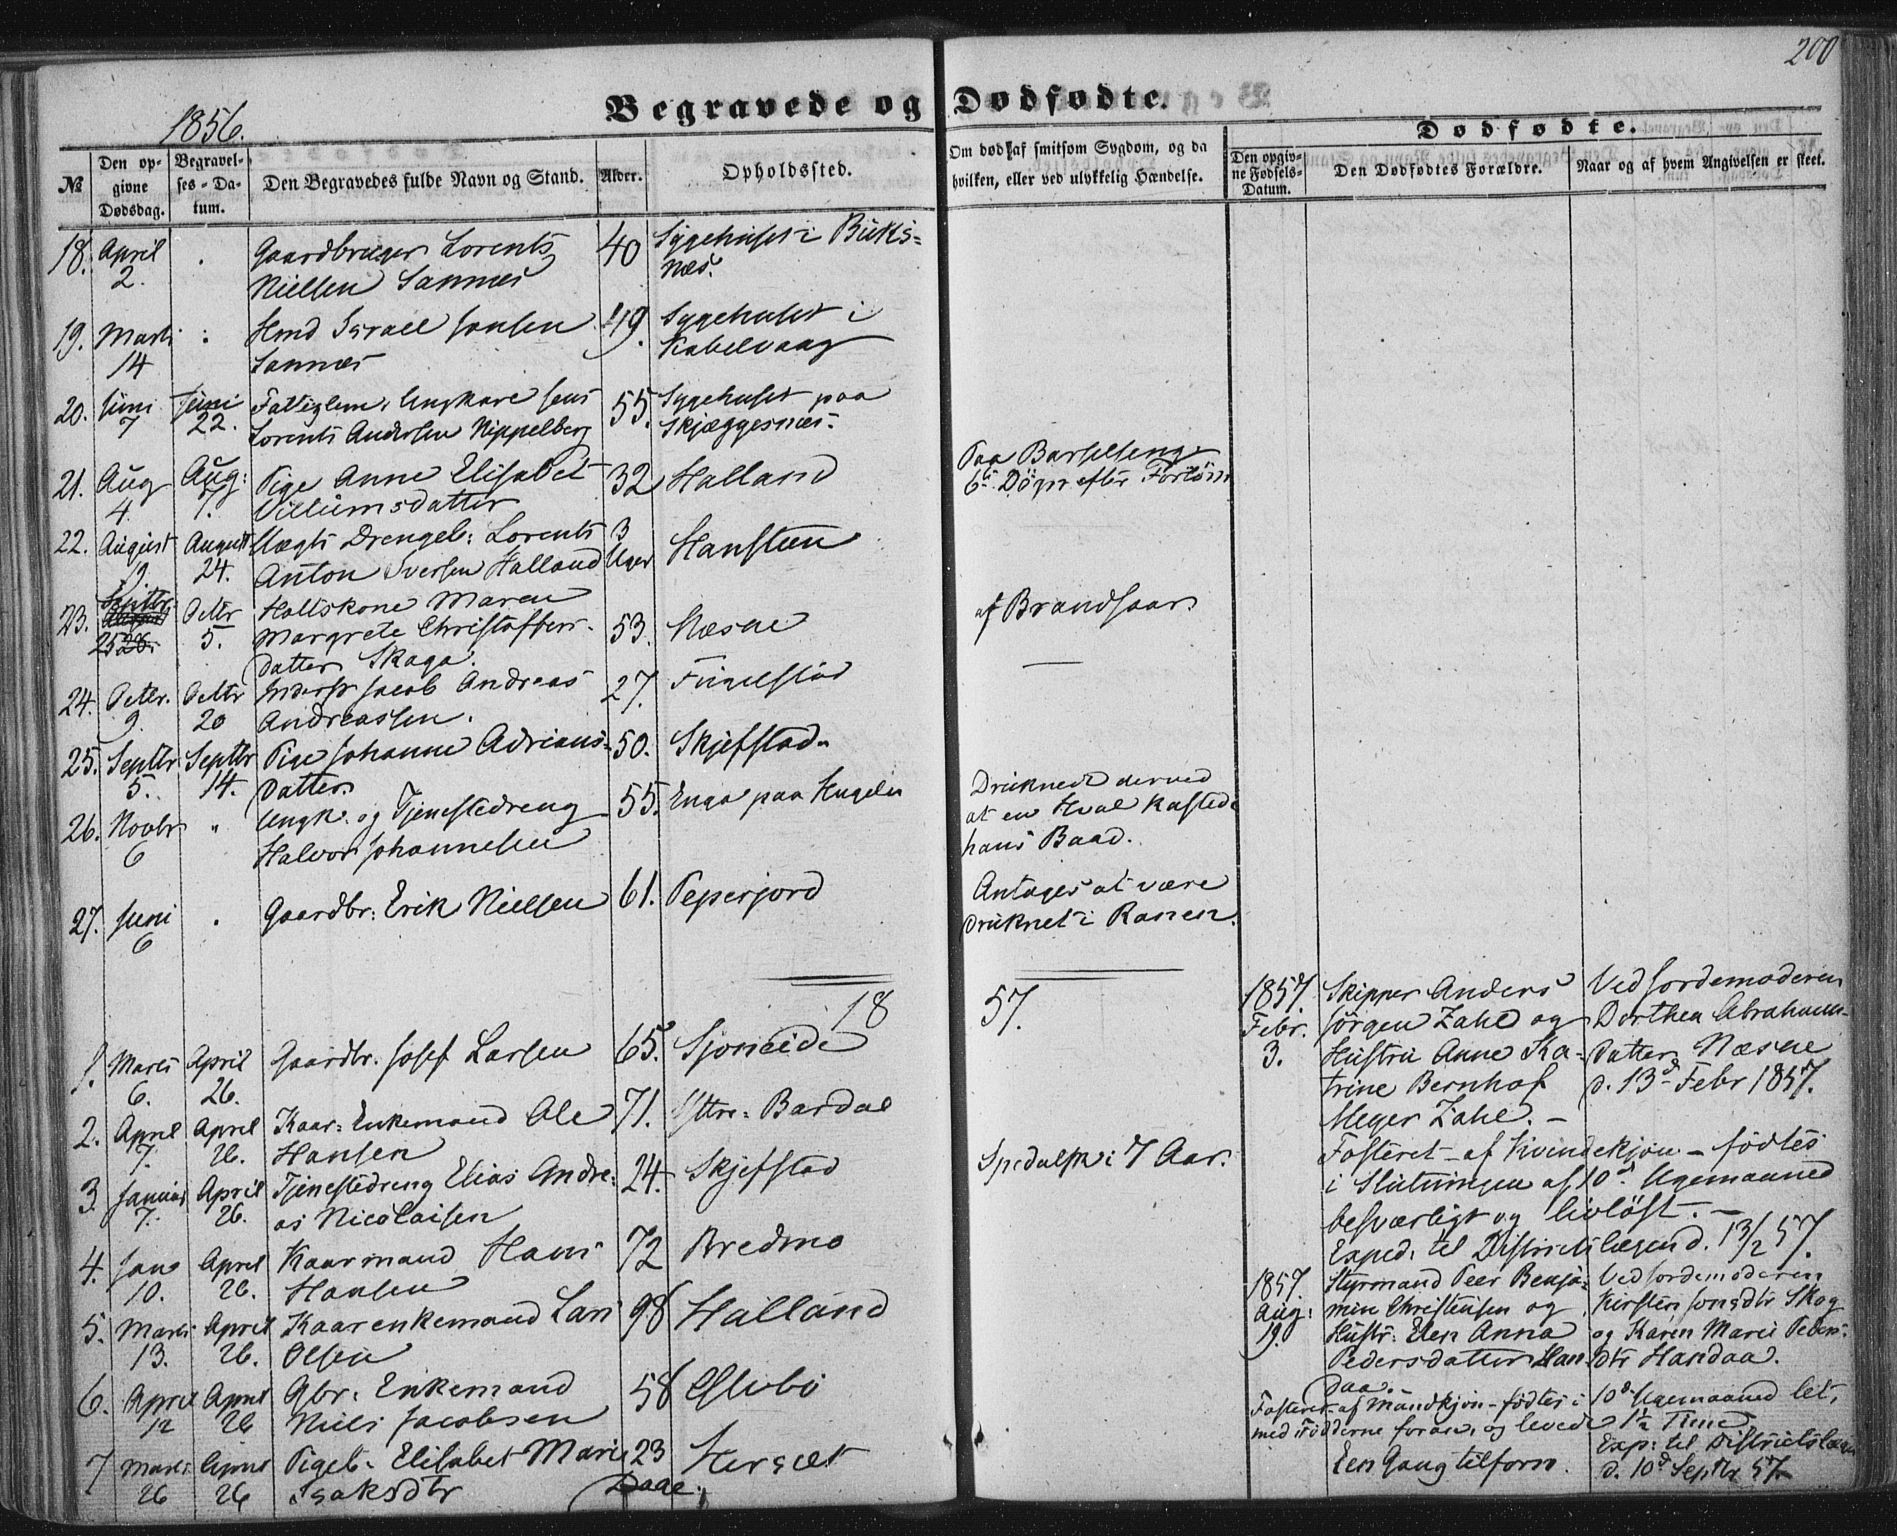 200
Begravede og Dødfødte.
1856.
Dødfødte.
№
Den op-
givne
Dødsdag.
Begravel-
ses-Da-
tum.
Den Begravedes fulde Navn og Stand.
Alder.
Opholdssted.
Om død af smitsom Sygdom, og da
hvilken, eller ved ulykkelig Hændelse.
Den opgiv-
ne Fødsels-
Datum.
Den Dødfødtes Forældre.
Naar og af hvem Angivelsen er skeet.
18. April Gaardbruger Lorents 40 Sygehuset i Buks-
2. Nielsen Sannes næs.
19. Marts Israel Jonsen 49. Sygehuset i
14 Sannes Kabelvaag
20. Juni Juni Fattiglem, Ungkare Jens 55. Sygehuset paa
7 22. Lorents Andersen Nippelberg Skjæggesnæs.
21. Aug Aug: Pige Anne Elisabet 32 Halland Paa Barselseng
4. 7. Villumsdatter 6te Døgn efter Forløsn
22. August August Uægte Drengeb: Lorents 3 Hansteen
9. 24. Anton Iversen Halland Uger
23. Septbr. Octbr Maren 53. Næsne af Brandsaar
25 5. Margrete Christoffers-
datter Skaga.
24. Octbr. Octbr Inderst Jacob Andreas 27. Fuglestad
9. 20 Andreassen.
25. Septbr Septbr Pige Johanne Adrians- 50. Skjefstad
5. 14. Datter
26. Novbr " Ungk. og Tjenestedreng 55. Enga paa Hugeln Druknede derved
6 Halvor Johannesen at en Hval kastede
hans Baad.
27. Juni Gaardbr: Erik Nielsen 61. Peperjord Antages at være
6 druknet i Ranen.
18 57.
1. Marts April Gaardbr. Josef Larsen 65. Sjoneide
6. 26.
2. April April Kaar: Enkemand Ole 71. Yttre: Bardal
7. 26. Hansen
3. Januar April Tjenestedreng Elias Andre- 24. Skjefstad Spedalsk i 7 Aar.
7. 26. as Nicolaisen
4. Jan April Kaarmand Hans 72 Bredmo
10. 26. Hansen
5. Marts April Kaarenkemand Lars 98 Halland
13. 26. Olsen
6. April April Gbr: Enkemand 58
12 26 Niels Jacobsen
7 Marts April Pigeb. Elisabet Marie 23 Hersæt
26 26 Isaksdtr Dage.
1857 Skipper Anders Ved Jordemoderen
Febr. Jørgen Zahl og Dorthea Abrahams-
3. Hustru Anne Ka- datter Næsne
trine Bernhof d. 13d Febr 1857.
Meyer Zahl. -
Fosteret - af Kvindekjøn - fødtes
i Slutningen af 10d Ugemaaned
besværligt og livløst. -
Exped. til Districtslægen d. 13/2 57.
1857 Styrmand Peer Benja- Ved Jordemoderen
Aug: min Christensen og Kirsten Jonsdtr Skog
19. Hustr: Elen Anna og Karen Marie Peders-
Pedersdatter Han- dtr Handaa.
daa.
Fosteret af Mandkjøn - fødtes i 10de Ugemaaned let,
med Fødderne foran, og levede 1½ Time
Een Gang tilforn. Exp: til Districtslægen
d. 10d Septbr 57.